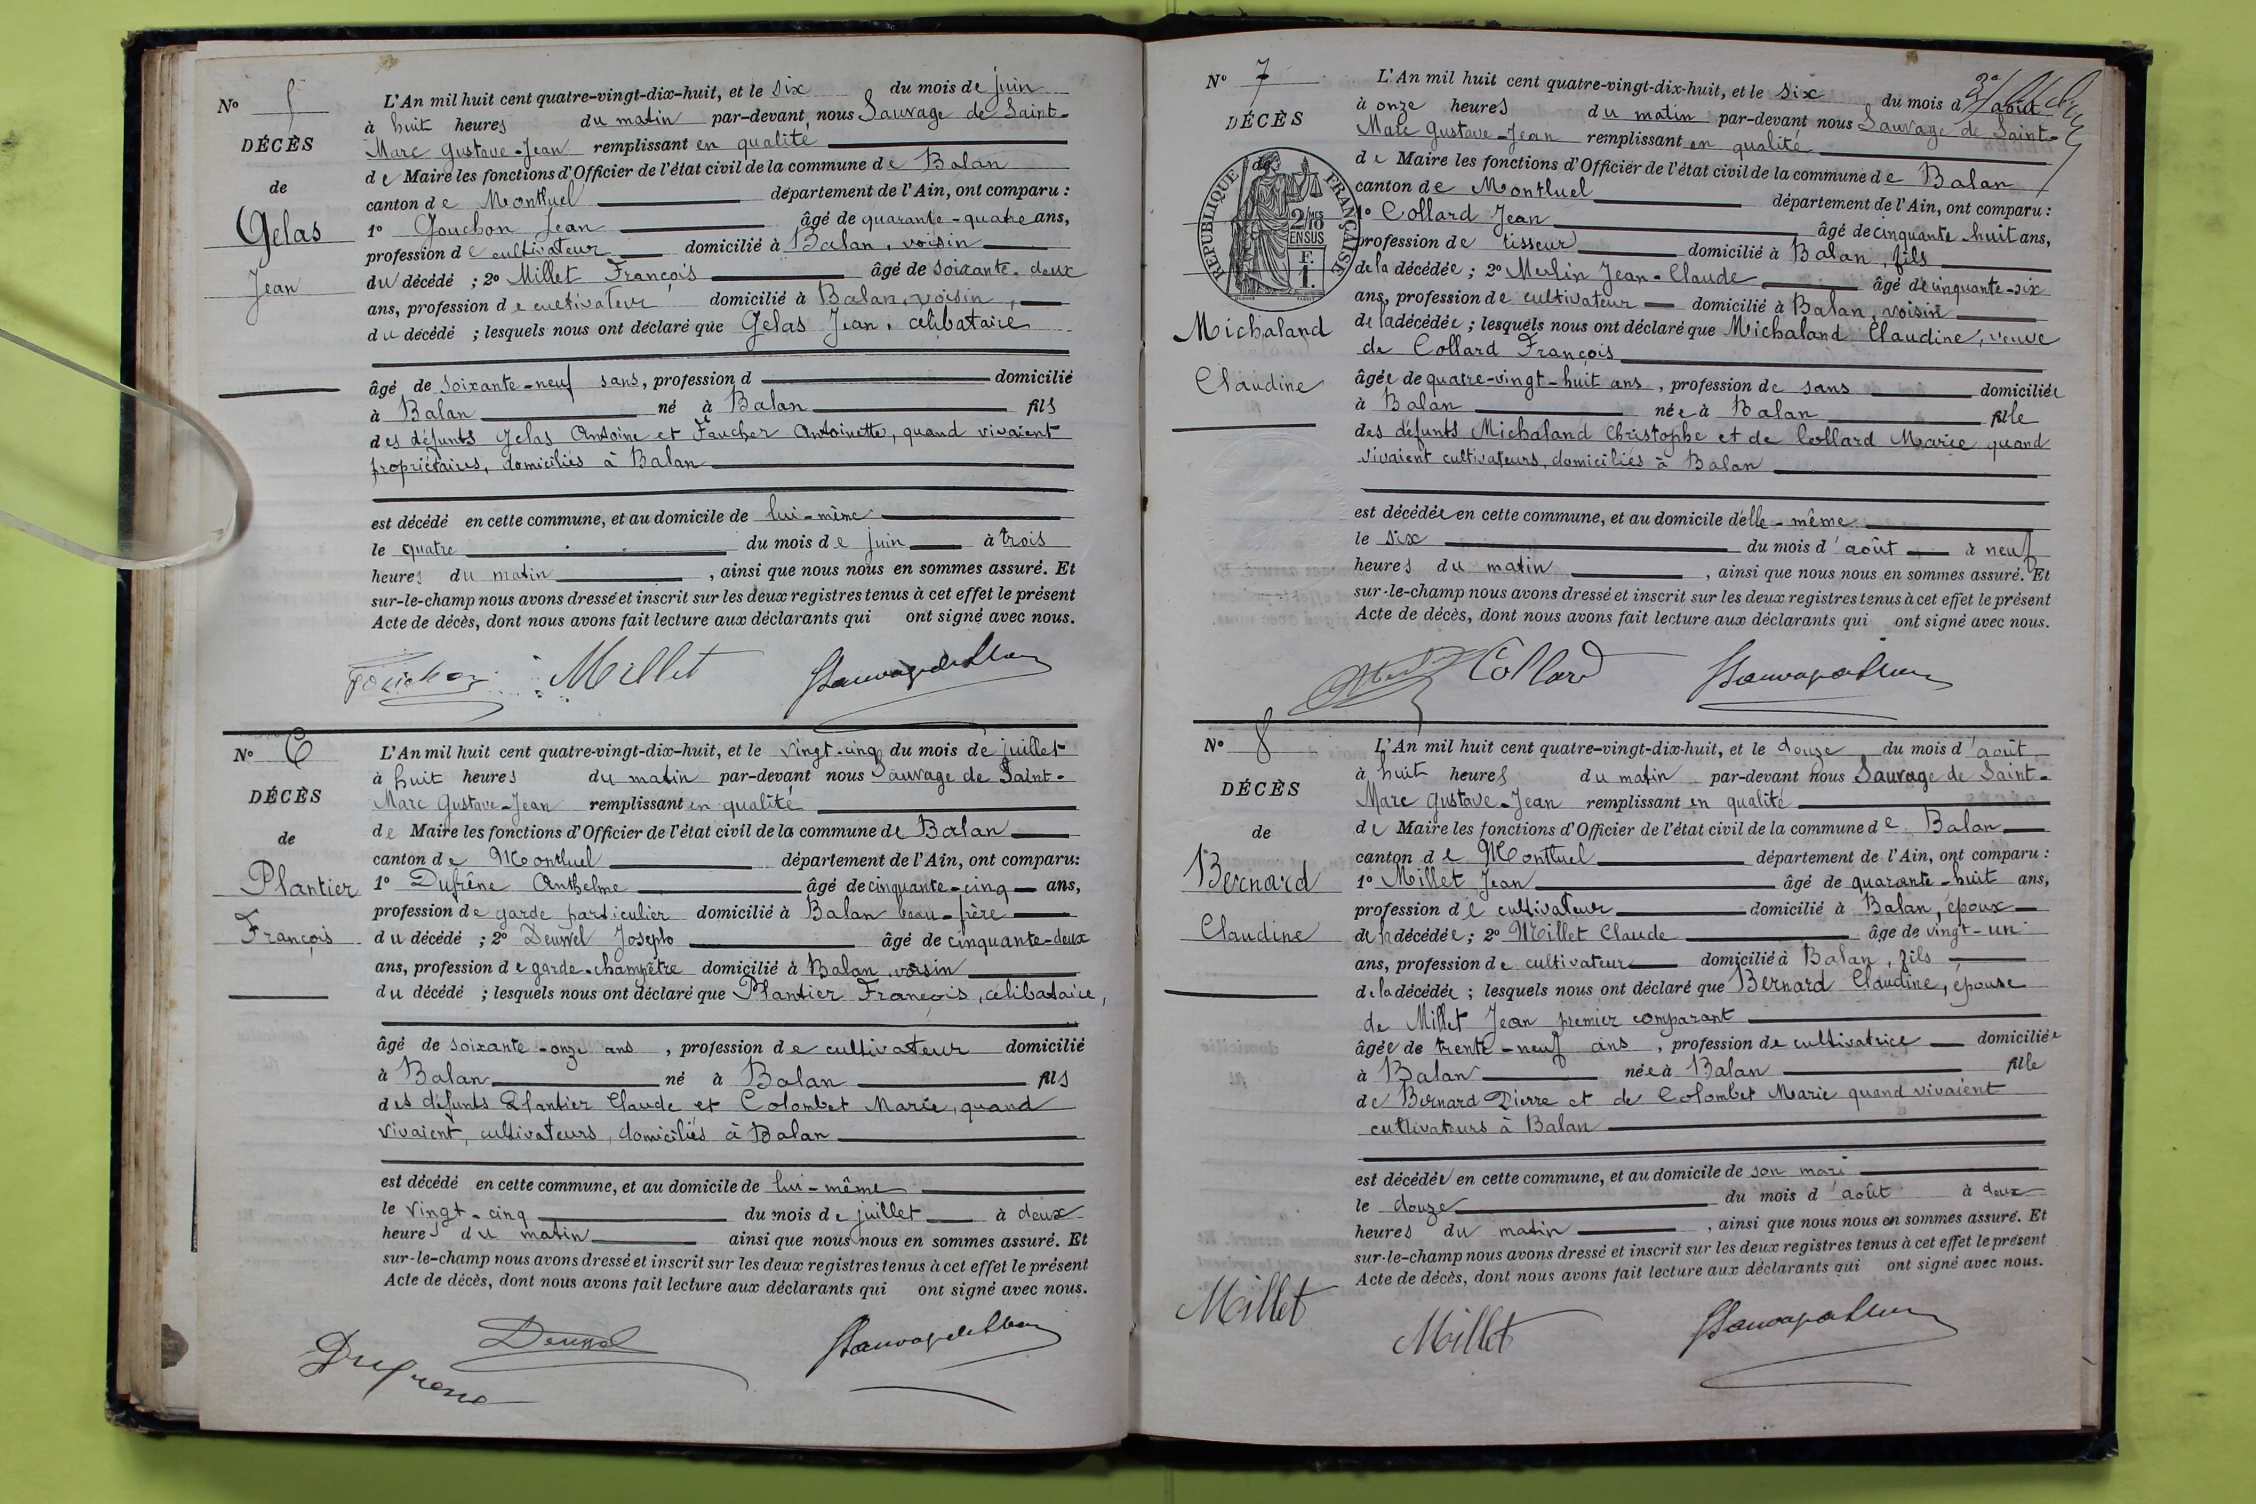 N° 5
DÉCÈS
de
Gelas
Jean
L'An mil huit cent quatre-vingt-dix-huit, et le six du mois de juin
à huit heures du matin par-devant nous Sauvage de Saint-
Marc Gustave-Jean remplissant en qualité
de Maire les fonctions d'Officier de l'état civil de la commune de Balan
canton de Montluel département de l'Ain, ont comparu :
1° Gouchon Jean âgé de quarante-quatre ans,
profession de cultivateur domicilié à Balan, voisin
du décédé ; 2° Millet François âgé de soixante-deux
ans, profession de cultivateur domicilié à Balan, voisin,
du décédé ; lesquels nous ont déclaré que Gelas Jean, célibataire
âgé de soixante-neuf sans, profession d domicilié
à Balan né à Balan fils
des défunts Gelas Antoine et Faucher Antoinette, quand vivaient
propriétaires, domiciliés à Balan
est décédé en cette commune, et au domicile de lui-même
le quatre du mois de juin à trois
heures du matin, ainsi que nous nous en sommes assuré. Et
sur-le-champ nous avons dressé et inscrit sur les deux registres tenus à cet effet le présent
Acte de décès, dont nous avons fait lecture aux déclarants qui ont signé avec nous.
Millet
N° 6
DÉCÈS
de
Plantier
François
L'An mil huit cent quatre-vingt-dix-huit, et le vingt-cinq du mois de juillet
à huit heures du matin par-devant nous Sauvage de Saint-
Marc Gustave-Jean remplissant en qualité
de Maire les fonctions d'Officier de l'état civil de la commune de Balan
canton de Montluel département de l'Ain, ont comparu:
1° Dufrêne Anthelme âgé de cinquante-cinq ans,
profession de garde particulier domicilié à Balan beau-frère
du décédé ; 2° Deuvel Joseph âgé de cinquante-deux
ans, profession de garde-champêtre domicilié à Balan voisin
du décédé ; lesquels nous ont déclaré que Plantier François, célibataire,
âgé de soixante-onze ans, profession de cultivateur domicilié
à Balan né à Balan fils
des défunts Plantier Claude et Colombet Marie, quand
vivaient, cultivateurs, domiciliés à Balan
est décédé en cette commune, et au domicile de lui-même
le vingt-cinq du mois de juillet à deux
heures du matin ainsi que nous nous en sommes assuré. Et
sur-le-champ nous avons dressé et inscrit sur les deux registres tenus à cet effet le présent
Acte de décès, dont nous avons fait lecture aux déclarants qui ont signé avec nous.
N° 7
DÉCÈS
de
RÉPUBLIQUE FRANÇAISE
2/10
EN SUS
F.
1.
Michaland
Claudine
L'An mil huit cent quatre-vingt-dix-huit, et le six du mois d'août
à onze heures du matin par-devant nous Sauvage de Saint-
Marc Gustave-Jean remplissant en qualité
de Maire les fonctions d'Officier de l'état civil de la commune de Balan
canton de Montluel département de l'Ain, ont comparu :
1° Collard Jean âgé de cinquante-huit ans,
profession de tisseur domicilié à Balan, fils
de la décédée ; 2° Merlin Jean-Claude âgé de cinquante-six
ans, profession de cultivateur domicilié à Balan, voisin
de la décédée ; lesquels nous ont déclaré que Michaland Claudine, veuve
de Collard François
âgée de quatre-vingt-huit ans, profession de sans domiciliée
à Balan née à Balan fille
des défunts Michaland Christophe et de Collard Marie quand
vivaient cultivateurs, domiciliés à Balan
est décédée en cette commune, et au domicile d'elle-même
le six du mois d'août à neuf
heures du matin, ainsi que nous nous en sommes assuré. Et
sur-le-champ nous avons dressé et inscrit sur les deux registres tenus à cet effet le présent
Acte de décès, dont nous avons fait lecture aux déclarants qui ont signé avec nous.
Collard
N° 8
DÉCÈS
de
Bernard
Claudine
L'An mil huit cent quatre-vingt-dix-huit, et le douze du mois d'août
à huit heures du matin par-devant nous Sauvage de Saint-
Marc Gustave-Jean remplissant en qualité
de Maire les fonctions d'Officier de l'état civil de la commune de Balan
canton de Montluel département de l'Ain, ont comparu :
1° Millet Jean âgé de quarante-huit ans,
profession de cultivateur domicilié à Balan, époux
de la décédée ; 2° Millet Claude âgé de vingt-un
ans, profession de cultivateur domicilié à Balan, fils
de la décédée ; lesquels nous ont déclaré que Bernard Claudine, épouse
de Millet Jean premier comparant
âgée de trente-neuf ans, profession de cultivatrice domiciliée
à Balan née à Balan fille
de Bernard Pierre et de Colombet Marie quand vivaient
cultivateurs à Balan
est décédée en cette commune, et au domicile de son mari
le douze du mois d'août à deux
heures du matin, ainsi que nous nous en sommes assuré. Et
sur-le-champ nous avons dressé et inscrit sur les deux registres tenus à cet effet le présent
Acte de décès, dont nous avons fait lecture aux déclarants qui ont signé avec nous.
Millet
Millet